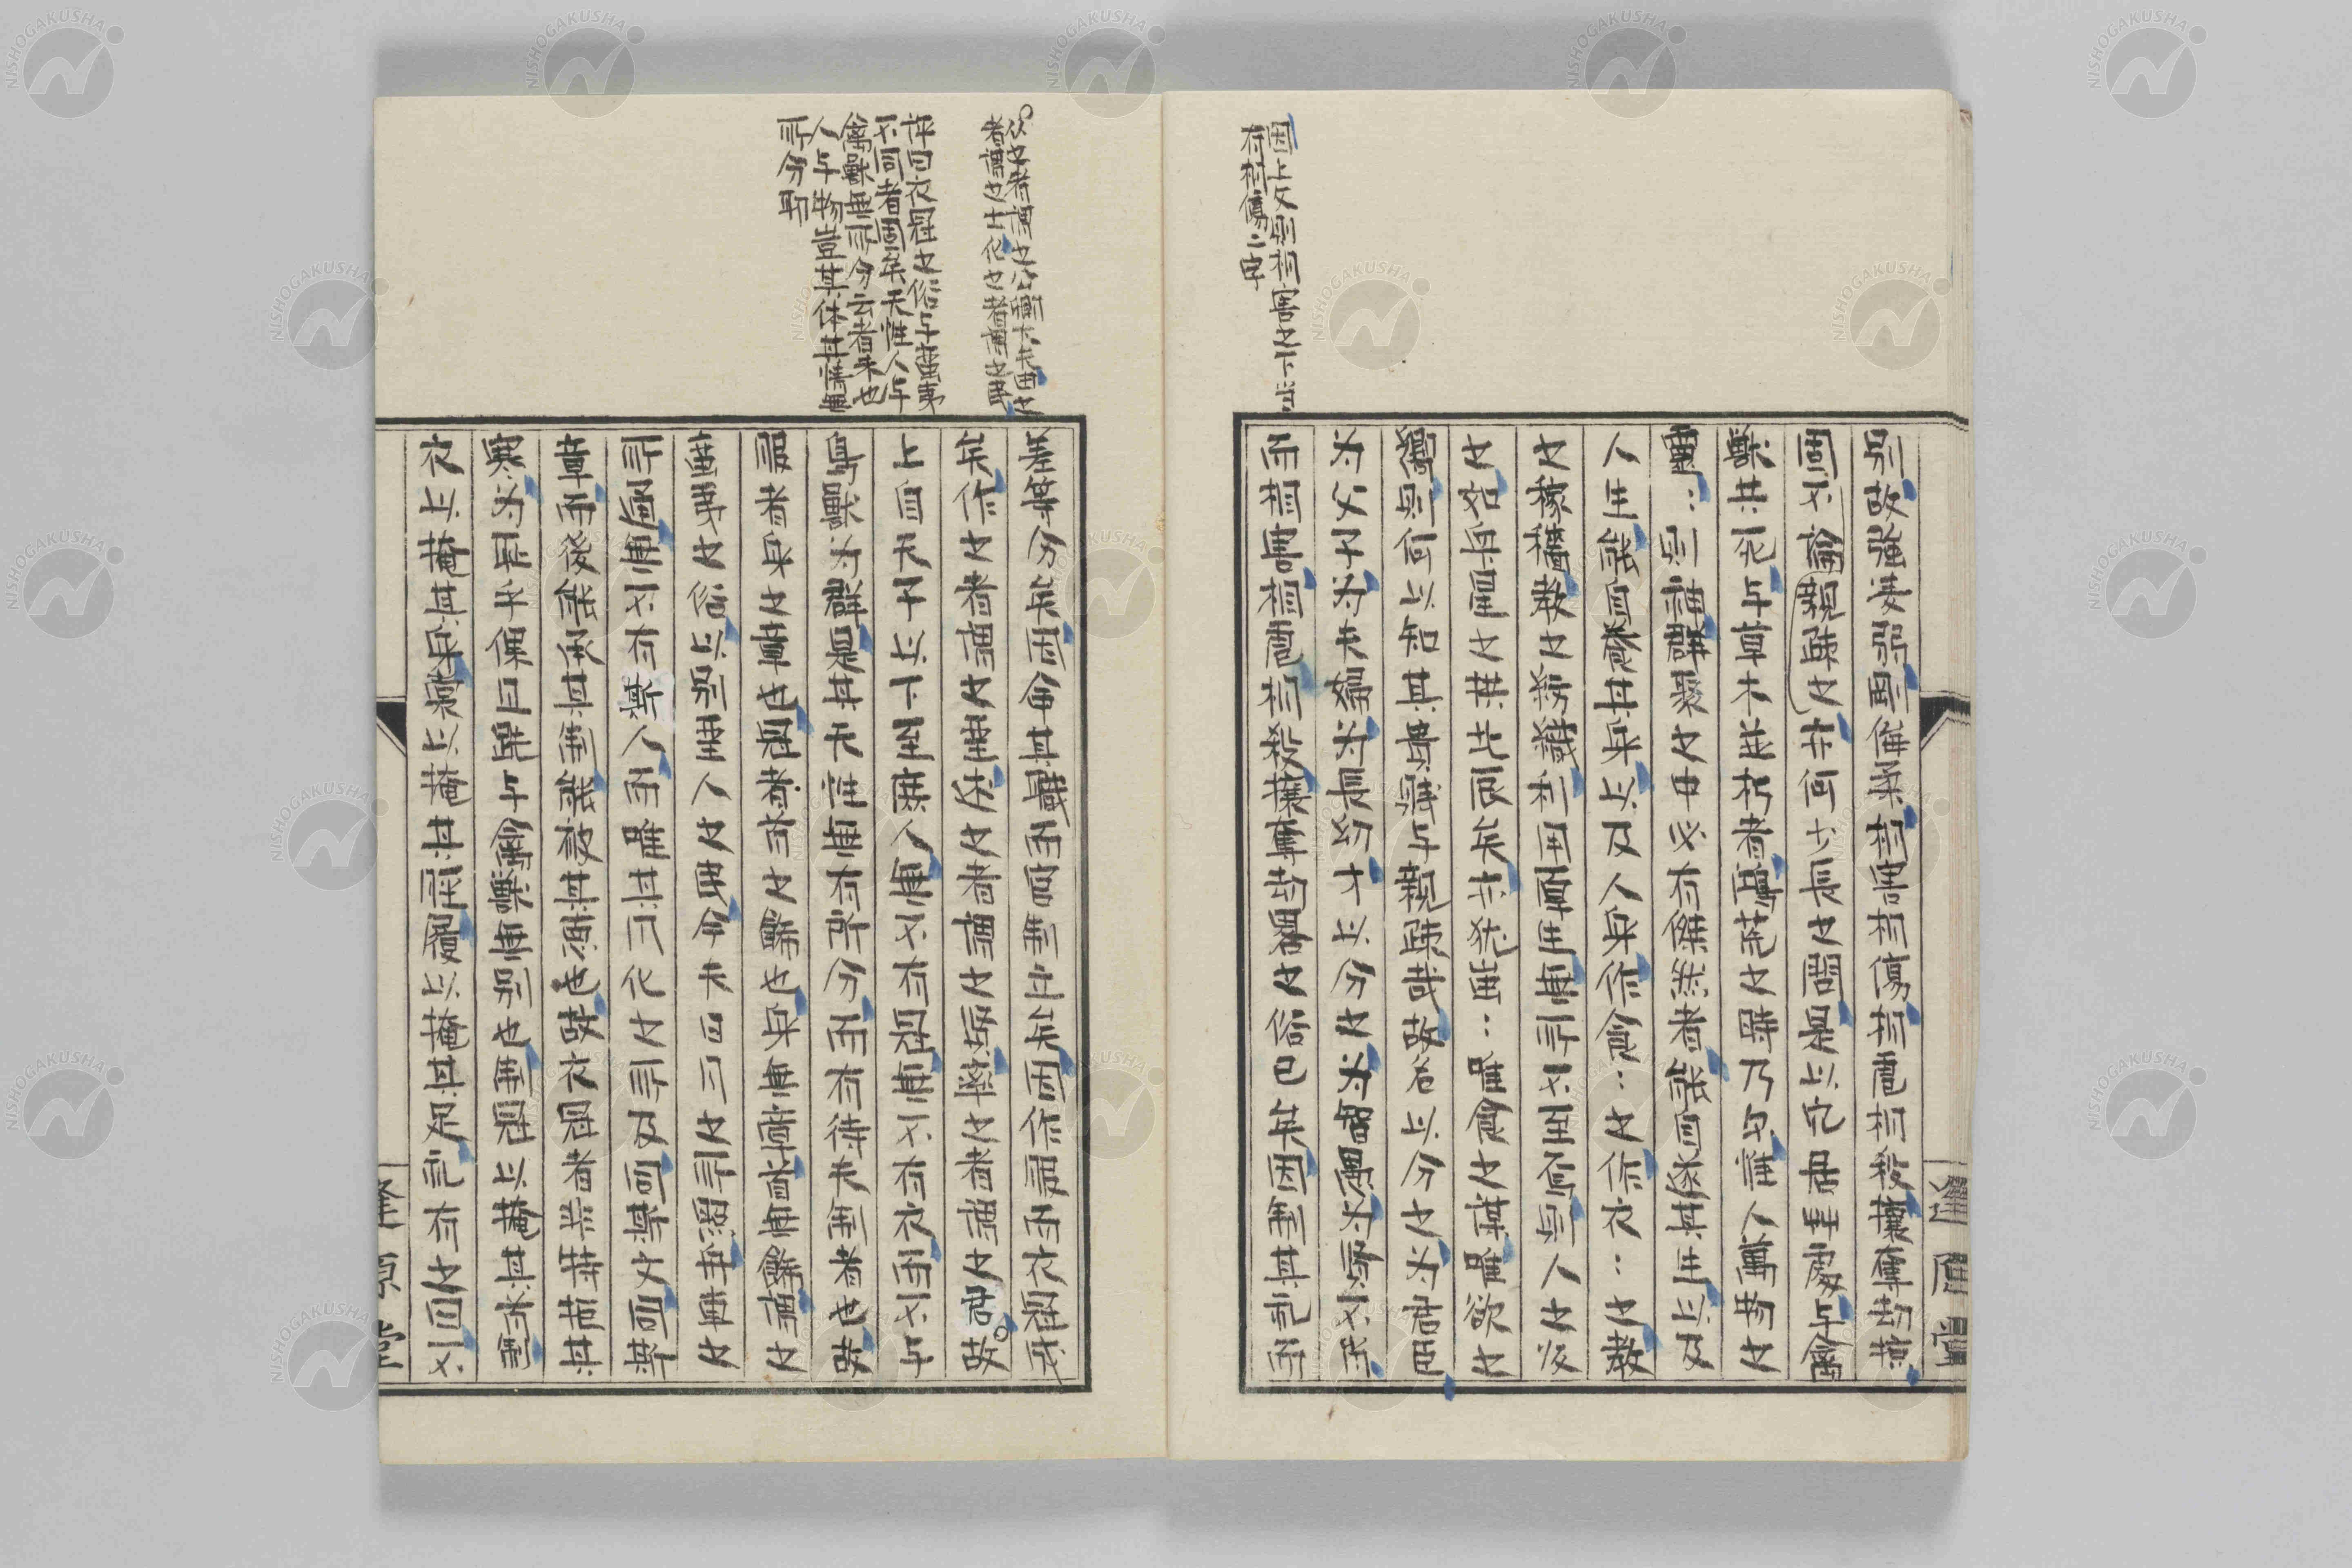 因上文則相害之下当
有相傷二字
別故強凌弱剛侮柔相害相傷相虐相殺攘奪劫掠
固不論親疎之亦何少長之問是以穴居野處与禽
獸共死与草木並朽者鴻荒之時乃尓惟人萬物之
靈〻則禆群聚之中必有傑然者能自遂其生以及
人生能自愛其身以及人身作食〻之作衣〻之教
之稼穡教之殺獵利用厚生無所不至焉則人之従
之如衆星之拱北辰矣亦犹蚩〻唯食之謀唯欲之
獨則何以知其貴賤与親疎哉故名以分之为君臣
为父子为夫婦为長幼才以分之为智愚为賢不肖
而相害相虐相殺攘奪劫畧之俗已矣因制其礼而
逢原堂
〇以之者謂之公卿大夫由之
者謂之士化之者謂之民
評曰衣冠之俗与蛮夷
不同者固矣天性人与
禽獸無所分云者未也
人与物豈其体其情無
所分耶
差等分矣因命其職而官制立矣因作服而衣冠成
矣作之者謂之聖述之者謂之賢率之者謂之君〇故
上自天子以下至庶人無不有冠無不有衣而不与
鳥獸为群是其天性無有所分而有待夫制者也故
服者身之章也冠者首之餙也身無章首無餙謂之
蛮夷之俗以別聖人之民今夫日月之所照舟車之
所通無不有斯人而唯其风化之所及同斯文同斯
章而後能承其制能被其惠也故衣冠者非特苞其
寒为恥乎倮且跣与禽獸無別也制冠以掩其首制
衣以掩其身裳以掩其脛履以掩其足礼有之曰不
逢原堂